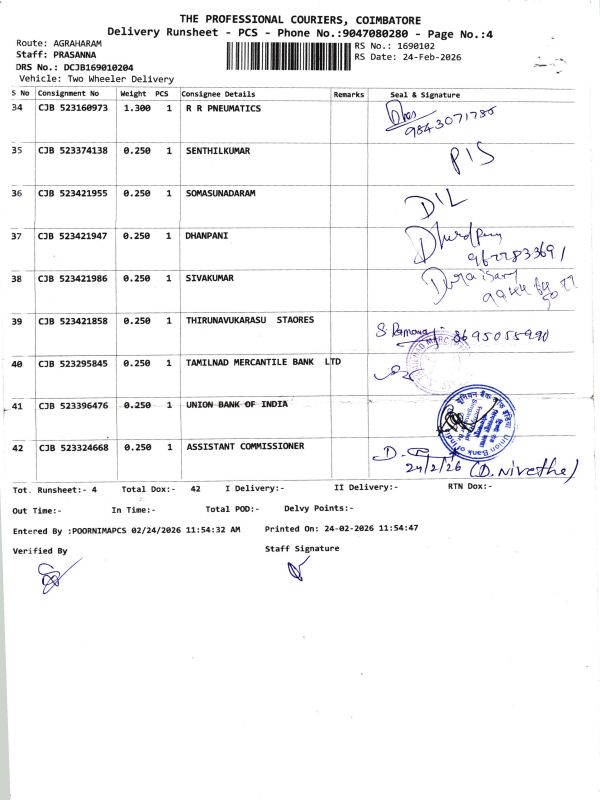 THE PROFESSIONAL COURIERS, COIMBATORE
Delivery Runsheet - PCS - Phone No.:9047080280 - Page No.:4
Route: AGRAHARAM
RS No.: 1690102
Staff: PRASANNA
RS Date: 24-Feb-2026
DRS No.: DCJB169010204
Vehicle: Two Wheeler Delivery
S No Consignment No Weight PCS Consignee Details Remarks Seal & Signature
34 CJB 523160973 1.300 1 R R PNEUMATICS
9843071785
35 CJB 523374138 0.250 1 SENTHILKUMAR
P/S
36 CJB 523421955 0.250 1 SOMASUNADARAM
D/L
37 CJB 523421947 0.250 1 DHANPANI
38 CJB 523421986 0.250 1 SIVAKUMAR
39 CJB 523421858 0.250 1 THIRUNAVUKARASU STAORES
40 CJB 523295845 0.250 1 TAMILNAD MERCANTILE BANK LTD
41 CJB 523396476 0.250 1 UNION BANK OF INDIA
Union Bank of India
42 CJB 523324668 0.250 1 ASSISTANT COMMISSIONER
24/2/26 (D. Nivetha)
Tot. Runsheet:- 4 Total Dox:- 42 I Delivery:- II Delivery:- RTN Dox:-
Out Time:- In Time:- Total POD:- Delvy Points:-
Entered By :POORNIMAPCS 02/24/2026 11:54:32 AM Printed On: 24-02-2026 11:54:47
Verified By Staff Signature